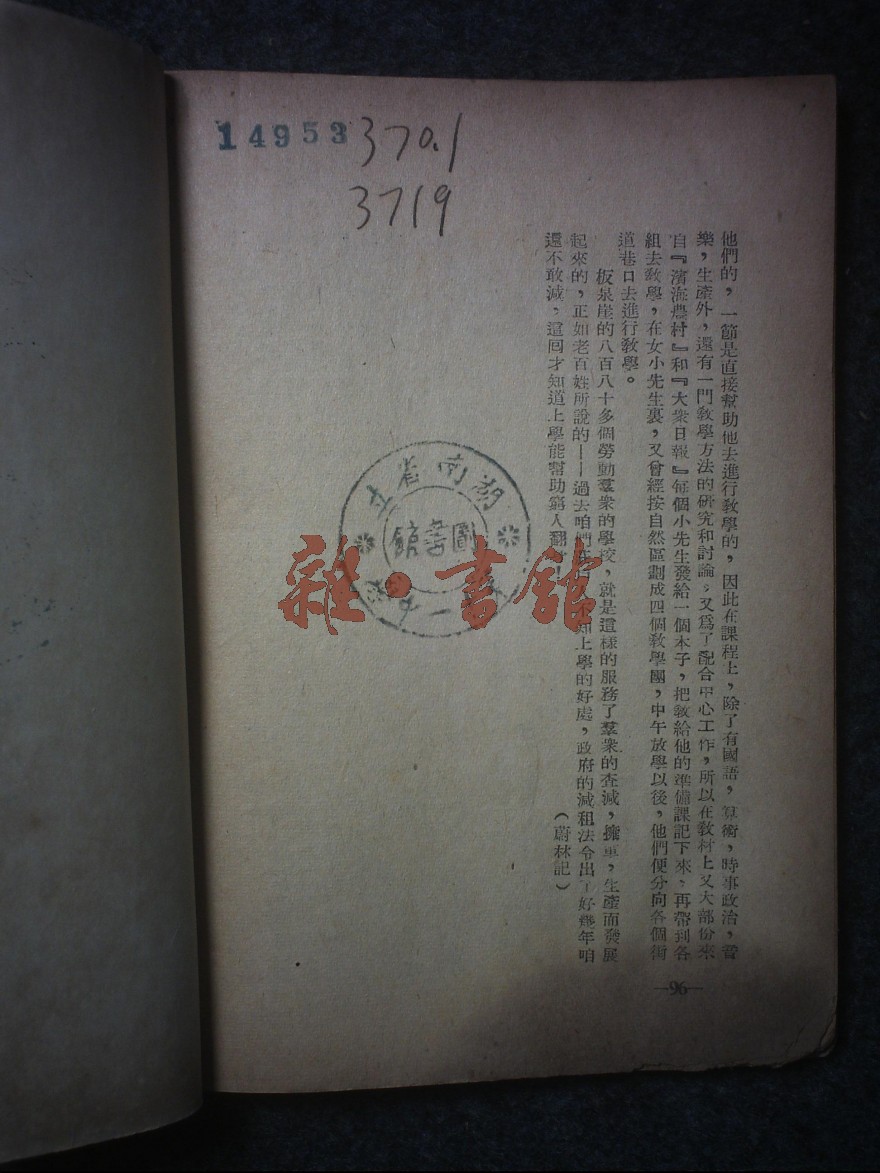 14953
370.1
3719
他們的，一節是直接幫助他去進行教學的，因此在課程上，除了有國語，算術，時事政治，音
樂，生產外，還有一門教學方法的研究和討論；又爲了配合中心工作，所以在教材上又大部份來
自『濱海農村』和『大衆日報』每個小先生發給一個本子，把教給他的準備課記下來，再帶到各
組去教學，在女小先生裏，又曾經按自然區劃成四個教學團，中午放學以後，他們便分向各個街
道巷口去進行教學。
板泉崖的八百八十多個勞動羣衆的學校，就是這樣的服務了羣衆的查減，擁軍，生產而發展
起來的，正如老百姓所說的——過去咱們 不知上學的好處，政府的減租法令出了好幾年咱
還不敢減，這囘才知道上學能幫助窮人翻
（蔚林記）
—96—
湖南省立
圖書館
雜·書館